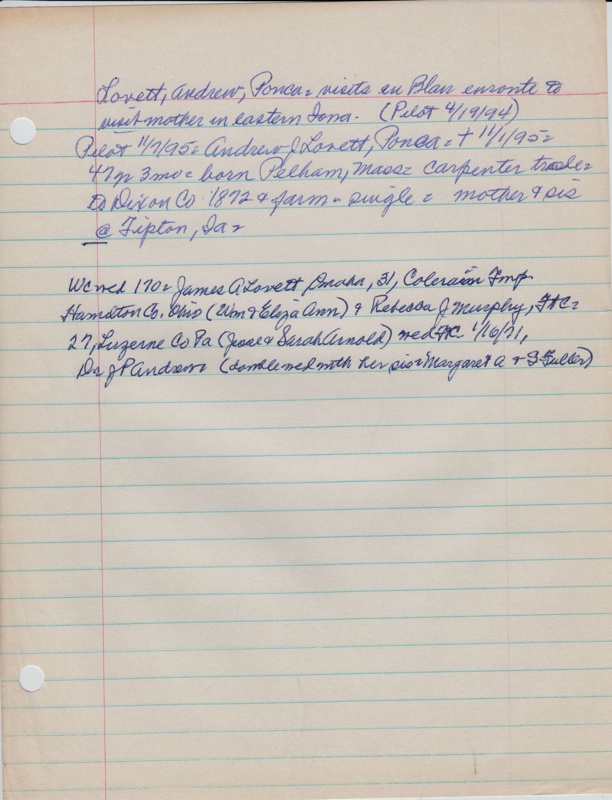 Lovett, Andrew, Ponca = visits in Blair enroute to
visit mother in eastern Iowa. (Pilot 4/19/94)
Pilot 11/7/95 = Andrew J Lovett, Ponca = + 11/1/95 =
47y 3mo = born Pelham, Mass = carpenter trade =
to Dixon Co 1872 & farm = single = mother & sis
@ Tipton, Ia =
WC wed 170 = James A Lovett, Omaha, 31, Colerain Twp
Hamilton Co. Ohio (Wm & Eliza Ann) & Rebecca J. Murphy, FtC =
27, Luzerne Co Pa (Jesse & Sarah Arnold) wed FtC 1/16/71,
Dr JP Andrews (double wed with her sis = Margaret A & S Fuller)